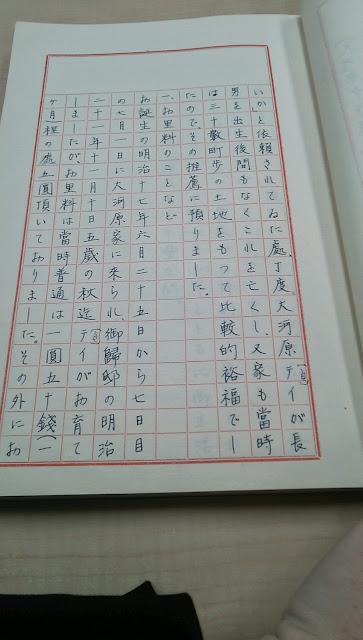 いか」と依頼されてゐた處、丁度、大河原テイが長
男を出生後間もなくこれを亡くし、又家も當時
は三十数町歩の土地をもつて比較的裕福でし
たので、その推薦に預りました。
一、お里料のことなど
お誕生の明治十七年六月二十五日から七日目
の七月一日に大河原家に來られ、御歸邸の明治
二十一年十一月十五歳の秋迄テイがお育て
しましたが、お里料は當時普通は一圓五十錢(一
ケ月)程の處五圓頂いておりました。その外にお